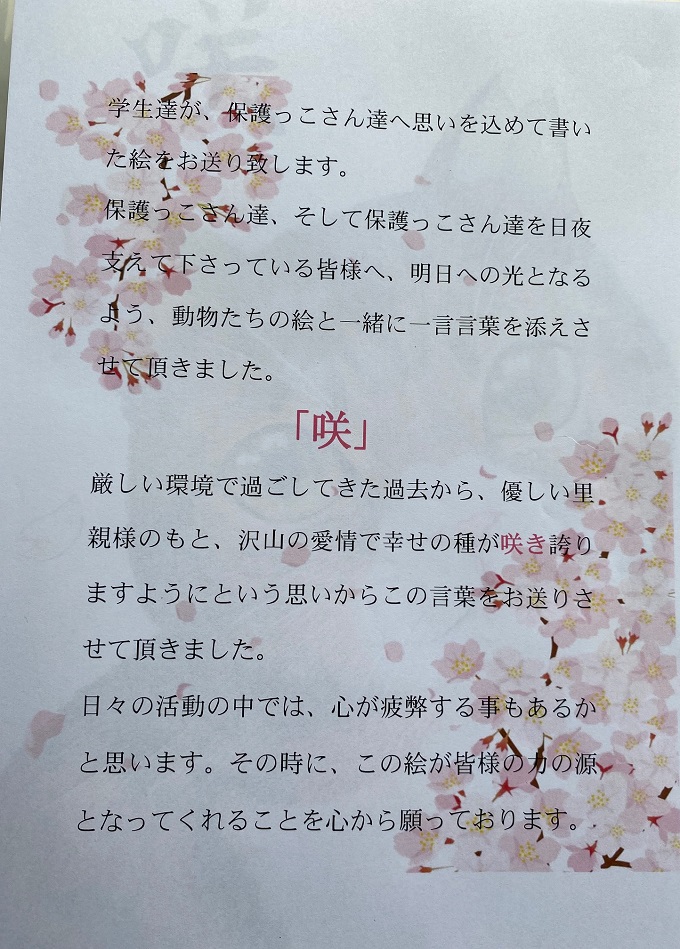 学生達が、保護っこさん達へ思いを込めて書い
た絵をお送り致します。
保護っこさん達、そして保護っこさん達を日夜
支えて下さっている皆様へ、明日への光となる
よう、動物たちの絵と一緒に一言言葉を添えさ
せて頂きました。
「咲」
厳しい環境で過ごしてきた過去から、優しい里
親様のもと、沢山の愛情で幸せの種が咲き誇り
ますようにという思いからこの言葉をお送りさ
せて頂きました。
日々の活動の中では、心が疲弊する事もあるか
と思います。その時に、この絵が皆様の力の源
となってくれることを心から願っております。